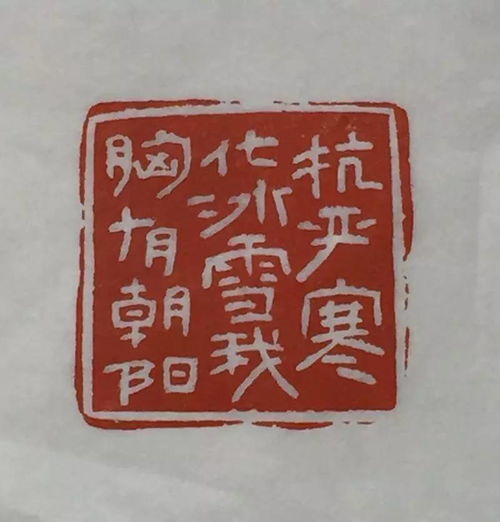 抗严寒
化冰雪我
胸有朝阳